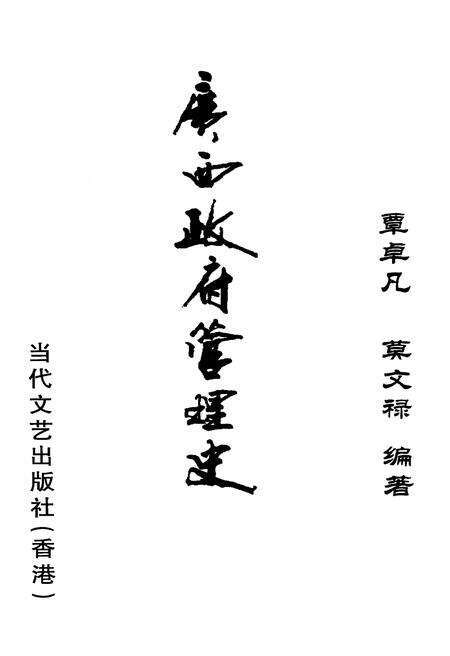 覃卓凡　莫文禄　编著
廣西政府管理史
当代文艺出版社(香港)